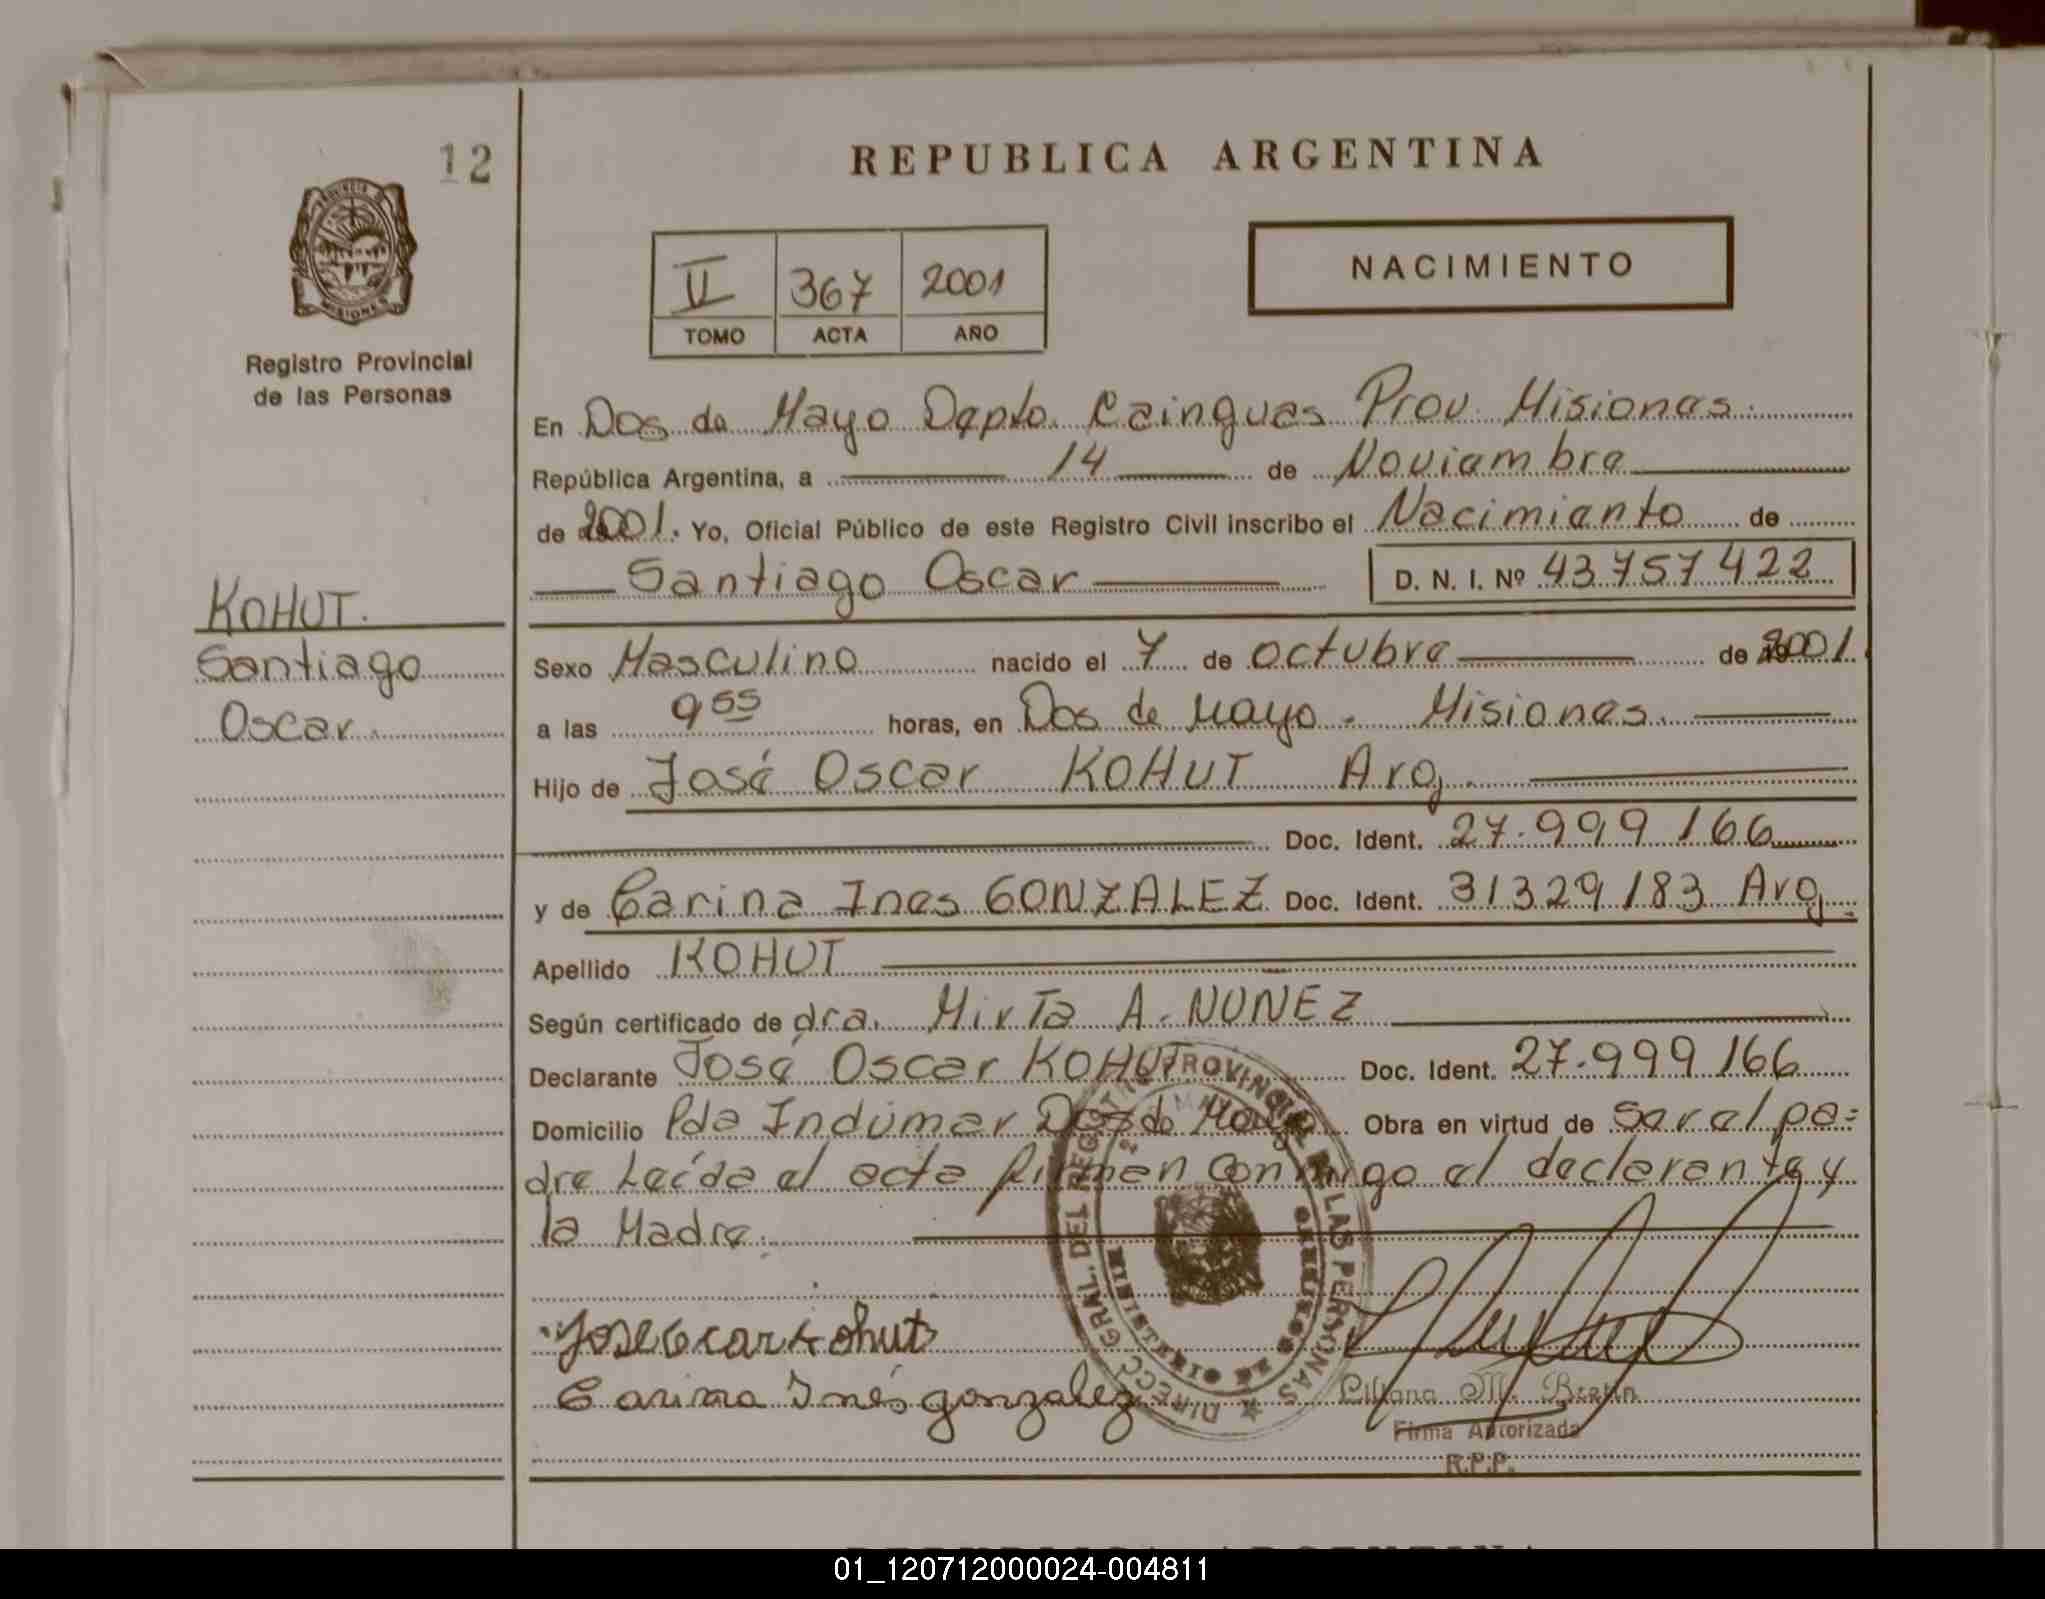 12
REPUBLICA ARGENTINA
NACIMIENTO
II 367 2001
TOMO ACTA AÑO
MISIONES
Registro Provincial
de las Personas
KOHUT.
Santiago
Oscar.
En Dos de Mayo Depto. Cainguas Prov. Misiones.
República Argentina, a 14 de Noviembre
de 2001. Yo, Oficial Público de este Registro Civil inscribo el Nacimiento de
Santiago Oscar D. N. I. Nº 43757422
Sexo Masculino nacido el 7 de octubre de 2001.
a las 9 55 horas, en Dos de Mayo. Misiones.
Hijo de José Oscar KOHUT Arg.
Doc. Ident. 27.999166
y de Carina Ines GONZALEZ Doc. Ident. 31329183 Arg.
Apellido KOHUT
Según certificado de dra. Mirta A. NUNEZ
Declarante José Oscar KOHUT Doc. Ident. 27.999166
Domicilio Pda Indumar Dos de Mayo Obra en virtud de Ser el pa=
dre Leída el acta firman conmigo el declarante y
la Madre.
Jose Oscar Kohut
Carina Inés gonzalez
DIRECC. GRAL. DEL REGISTRO PROVINCIAL DE LAS PERSONAS
MINISTERIO DE GOBIERNO
Liliana M.
Firma Autorizada
R.P.P.
REPUBLICA ARGENTINA
01_120712000024-004811